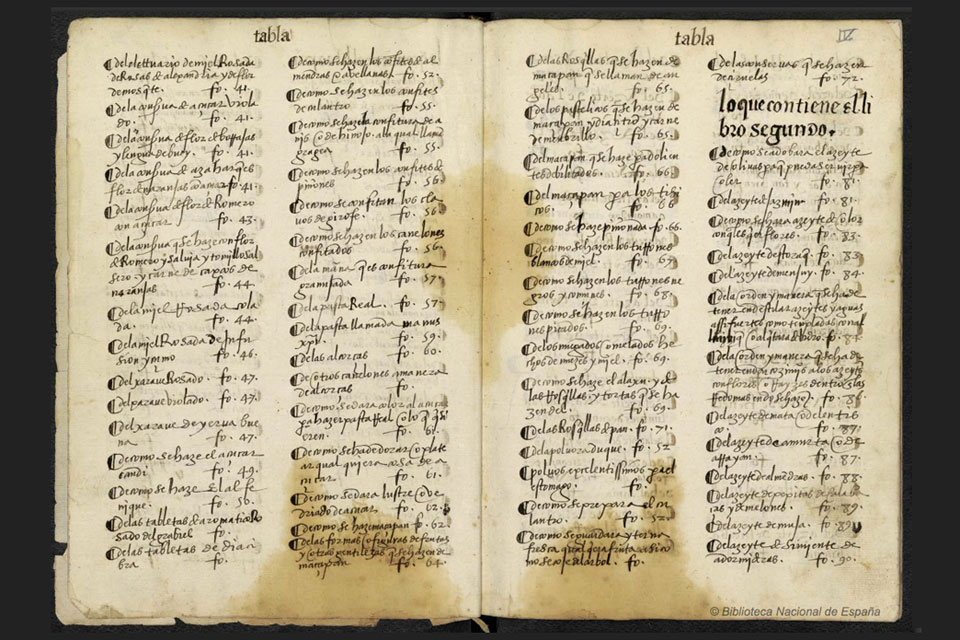 tabla
del lettuario de miel Rosada
de Rosas de alexandria y de flor
de mosqte. fo. 41.
dela conserua de açucar viola
do. fo. 41.
dela conserua de flor de borrajas
y lengua de buey. fo. 41.
dela conserua de azahar
flor de naranjas con açucar fo. 41.
dela conserua de flor de Romero
con açucar fo. 43.
dela conserua que se haze con flor
de Romero y saluia y tomillo sal
sero y carne de de
naranjas fo. 44
dela miel Rosada cola
da. fo. 44.
dela miel Rosada de infu
sion y fo. 46.
del xaraue Rosado. fo. 47.
del xaraue violado. fo. 47.
del xaraue de yerua bue
na fo. 47.
de como se haze el açucar
candi fo. 49.
de como se haze el alfe
nique. fo. 50.
de las tabletas de aromatico Ro
sado de fo.
de las tabletas de diaci
bra fo.
de como se hazen los confites de al
mendras o avellanas fo. 52.
de como se hazen los confites
de culantro fo. 55.
de como se haze la confitura de a
nis o de hinojo. ala qual llaman
gragea fo. 55.
de como se hazen los confites de
piñones fo. 56
de como se confitan los cla
vos de girofe. fo. 56
de como se hazen los canelones
confitados fo. 56.
de la mana que es confitura
granujada fo. 57.
de la pasta Real. fo. 57.
de la pasta llamada manus
xpi. fo. 59.
de las alcorças fo. 60.
de otros canelones a manera
de alcorças fo.
de como se dara color al açucar
para hazer pasta Real o lo que qui si
eren. fo. 61.
de como se ha de dorar o platear
qual quiera cosa de a
çucar. fo. 61.
de como se dara lustre o ve
driado de açucar. fo. 62.
de como se haze maçapan fo. 62.
de las formas o figuras de frutas
y otras gentilezas que se hazen de
maçapan fo. 64.
tabla
IV
de las Rosquillas que se hazen de
maçapan que se llaman de an
geles. fo. 65.
de los pastelicos que se hazen de
maçapan y diacitro y carne
de menbrillo. fo. 65.
del maçapan que se haze para dolien
tes debilitados. fo. 66
del maçapan para los tisi
cos. fo. 66
de como se haze piñonada fo. 66.
de como se hazen los turrones
blancos de miel. fo. 67
de como se hazen los turrones ne
gros y comunes. fo. 68.
de como se hazen los turro
nes picados. fo. 69.
de los nuegados o melados he
chos de nuezes y miel. fo. 69.
de como se haze el alaxu. y de
las Rosquillas y tortas que se ha
zen del. fo. 69.
de las Rosquillas de pan. fo. 71.
de la poluora duque. fo. 52
polvos excelentissimos para el
estomago. fo.
de como se prepara el cu
lantro. fo. 52
de como se guardara y terna
fresca qualquiera fruta asi co
mo se coje del arbol. fo.
de las conseruas que se hazen
de ciruelas fo. 72.
lo que contiene el li
bro segundo.
de como se adobara el azeyte
de oliuas para que pueda
oler fo. 81.
del azeyte de azmin fo. 81.
de como se hara azeyte de olor
con qualesquier flores. fo. 83.
del azeyte de estoraque. fo. 83
del azeyte de menjuy. fo. 84.
de la orden y manera que se ha de
tener en destilar azeytes y aguas
assi fuertes como templadas con al
fo. 84
de la orden y manera que se ha de
tener en dar azeytes
con flores
fo. 86
del azeyte de mata o de lentis
co. fo. 87.
del azeyte de
fo. 87.
del azeyte de almendras. fo. 88.
del azeyte de pepitas de calaba
ças y de melones. fo. 89.
del azeyte de nuezes. fo. 89.
del azeyte de simiente de
adormideras. fo. 90.
© Biblioteca Nacional de España